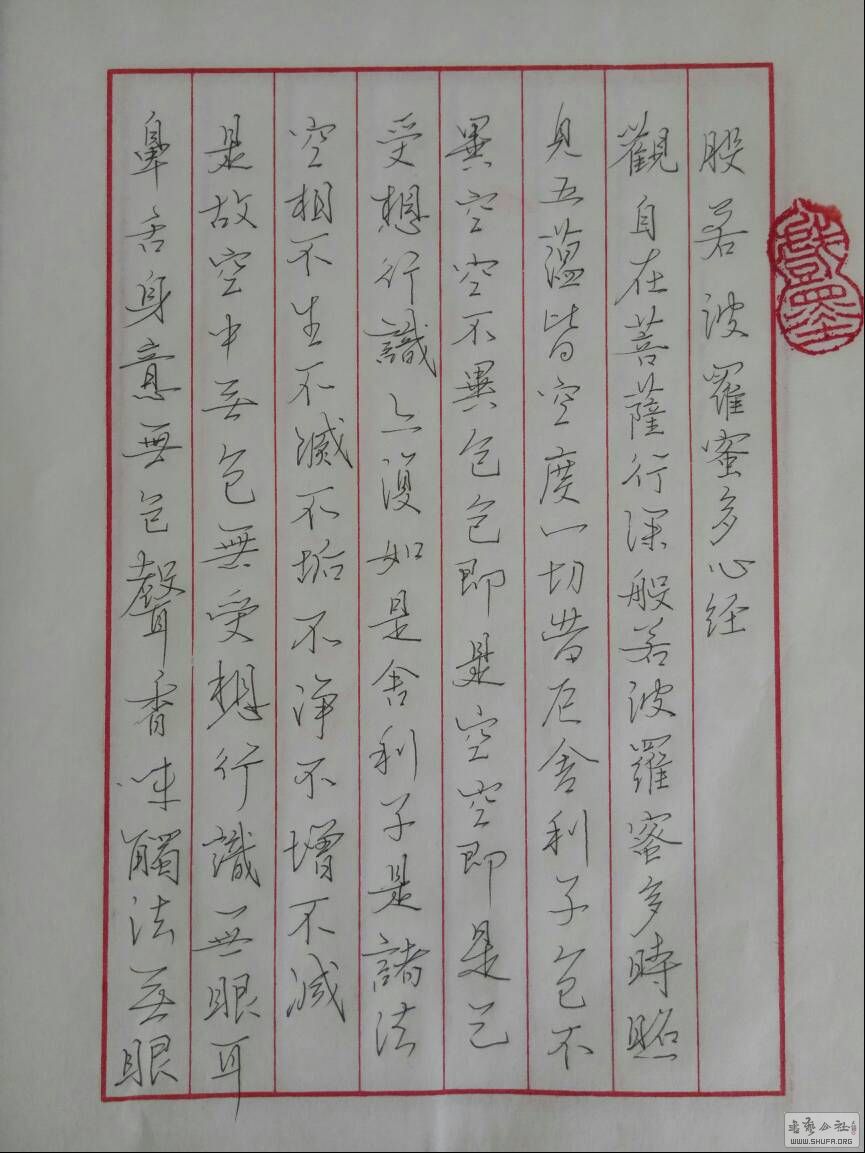 般若波羅蜜多心经
觀自在菩薩行深般若波羅蜜多時照
見五蕴皆空度一切苦厄舍利子色不
異空空不異色色即是空空即是色
受想行識亦復如是舍利子是諸法
空相不生不滅不垢不净不增不减
是故空中无色無受想行識無眼耳
鼻舌身意無色聲香味觸法无眼
WWW.SHUFA.ORG